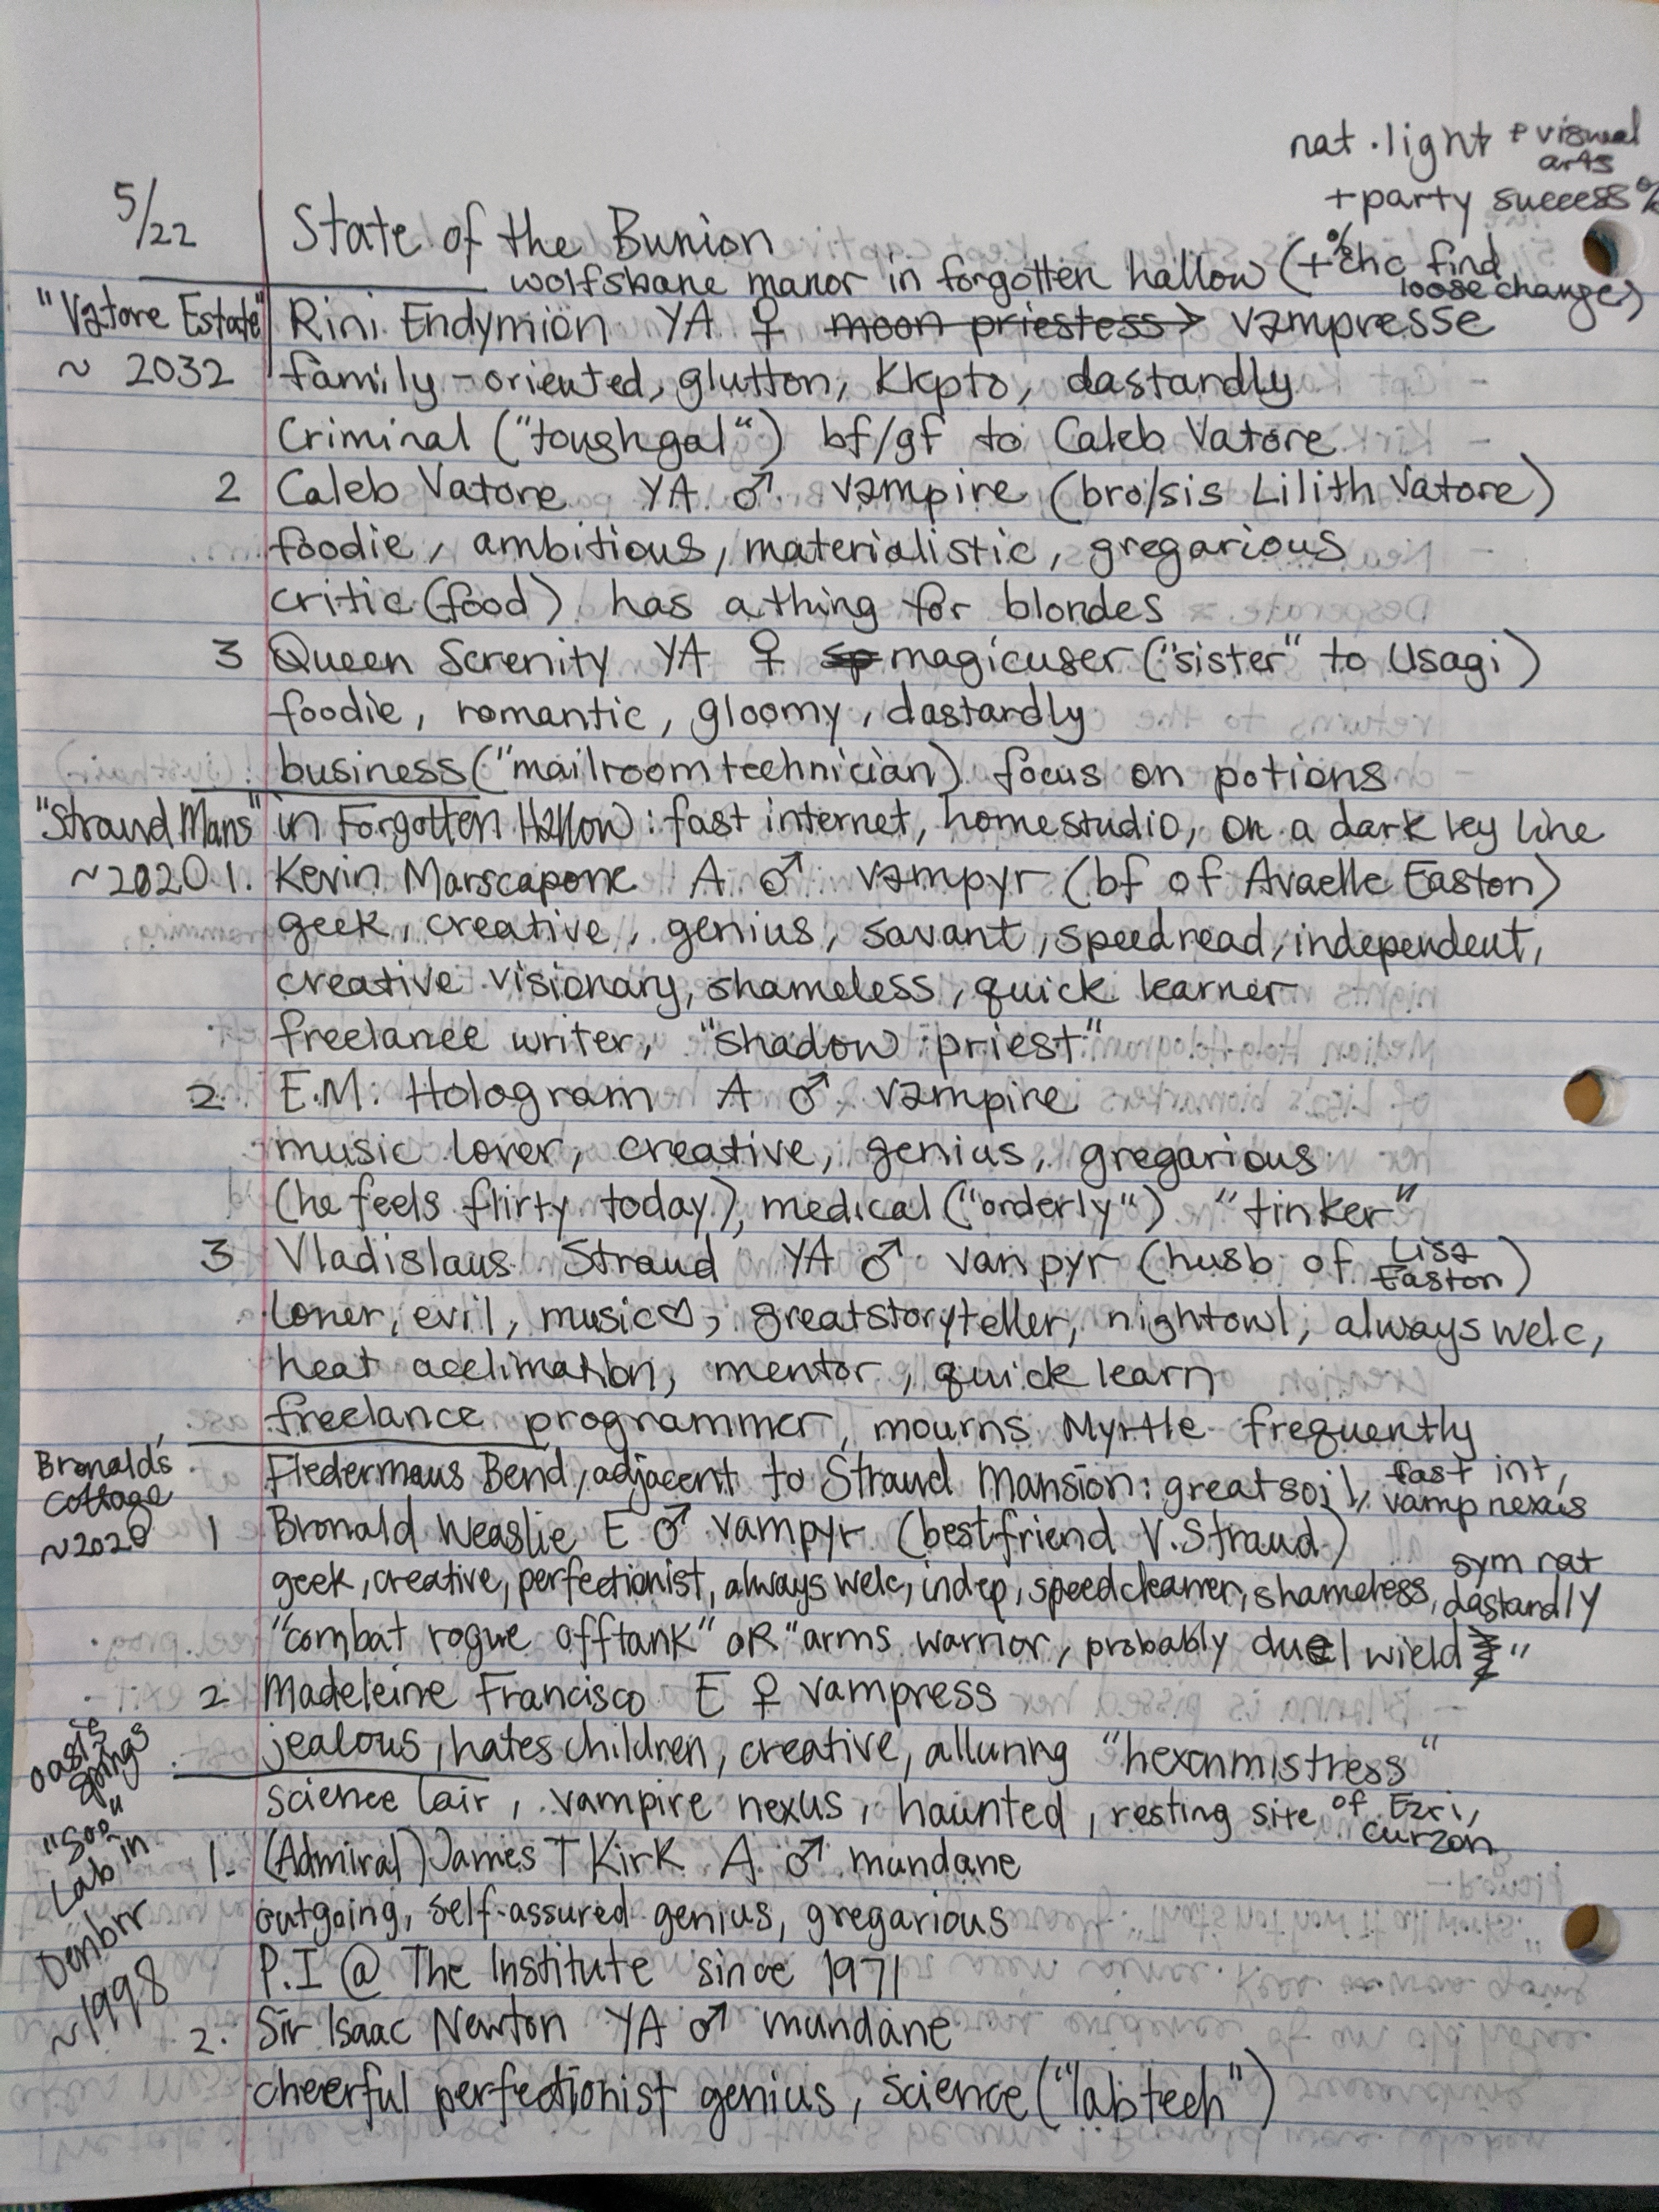 nat. light + visual arts
+ party success %
5/22 State of the Bunion
wolfsbane manor in forgotten hallow (+% chc find loose change)
"Vatore Estate" Rini Endymion YA ♀ moon priestess → vampresse
~ 2032 family-oriented, glutton, klepto, dastardly
Criminal ("tough gal") bf/gf to Caleb Vatore
2 Caleb Vatore YA ♂ vampire (bro/sis Lilith Vatore)
foodie, ambitious, materialistic, gregarious
critic (food) has a thing for blondes
3 Queen Serenity YA ♀ sp magicuser ("sister" to Usagi)
foodie, romantic, gloomy, dastardly
business ("mailroom technician) focus on potions
"Straud Mans" in Forgotten Hallow: fast internet, home studio, on a dark ley line
~2020 1. Kevin Marscapone A ♂ vampyr (bf of Avaelle Easton)
geek, creative, genius, savant, speedread, independent,
creative visionary, shameless, quick learner
freelance writer, "shadow priest"
2 E.M. Hologram A ♂ vampire
music lover, creative, genius, gregarious
(he feels flirty today), medical ("orderly") "tinker"
3 Vladislaus Straud YA ♂ vampyr (husb of Lisa Easton)
loner, evil, music♡, great storyteller, nightowl, always welc,
heat acclimation, mentor, quick learn
freelance programmer, mourns Myrtle frequently
Bronald's Cottage Fledermaus Bend, adjacent to Straud Mansion: great soil, fast int, vamp nexus
~2020 1 Bronald Weaslie E ♂ vampyr (bestfriend V. Straud)
geek, creative, perfectionist, always welc, indep, speedcleaner, shameless, sym nat dastardly
"combat rogue offtank" OR "arms warrior, probably duel wield"
2 Madeleine Francisco E ♀ vampress
jealous, hates children, creative, alluring "hexenmistress"
Oasis Springs science lair, vampire nexus, haunted, resting site of Ezri, Curzon
Lab in
~1998
1. (Admiral) James T Kirk A ♂ mundane
outgoing, self-assured genius, gregarious
P.I @ The Institute since 1971
2. Sir Isaac Newton YA ♂ mundane
cheerful perfectionist genius, science ("lab tech")